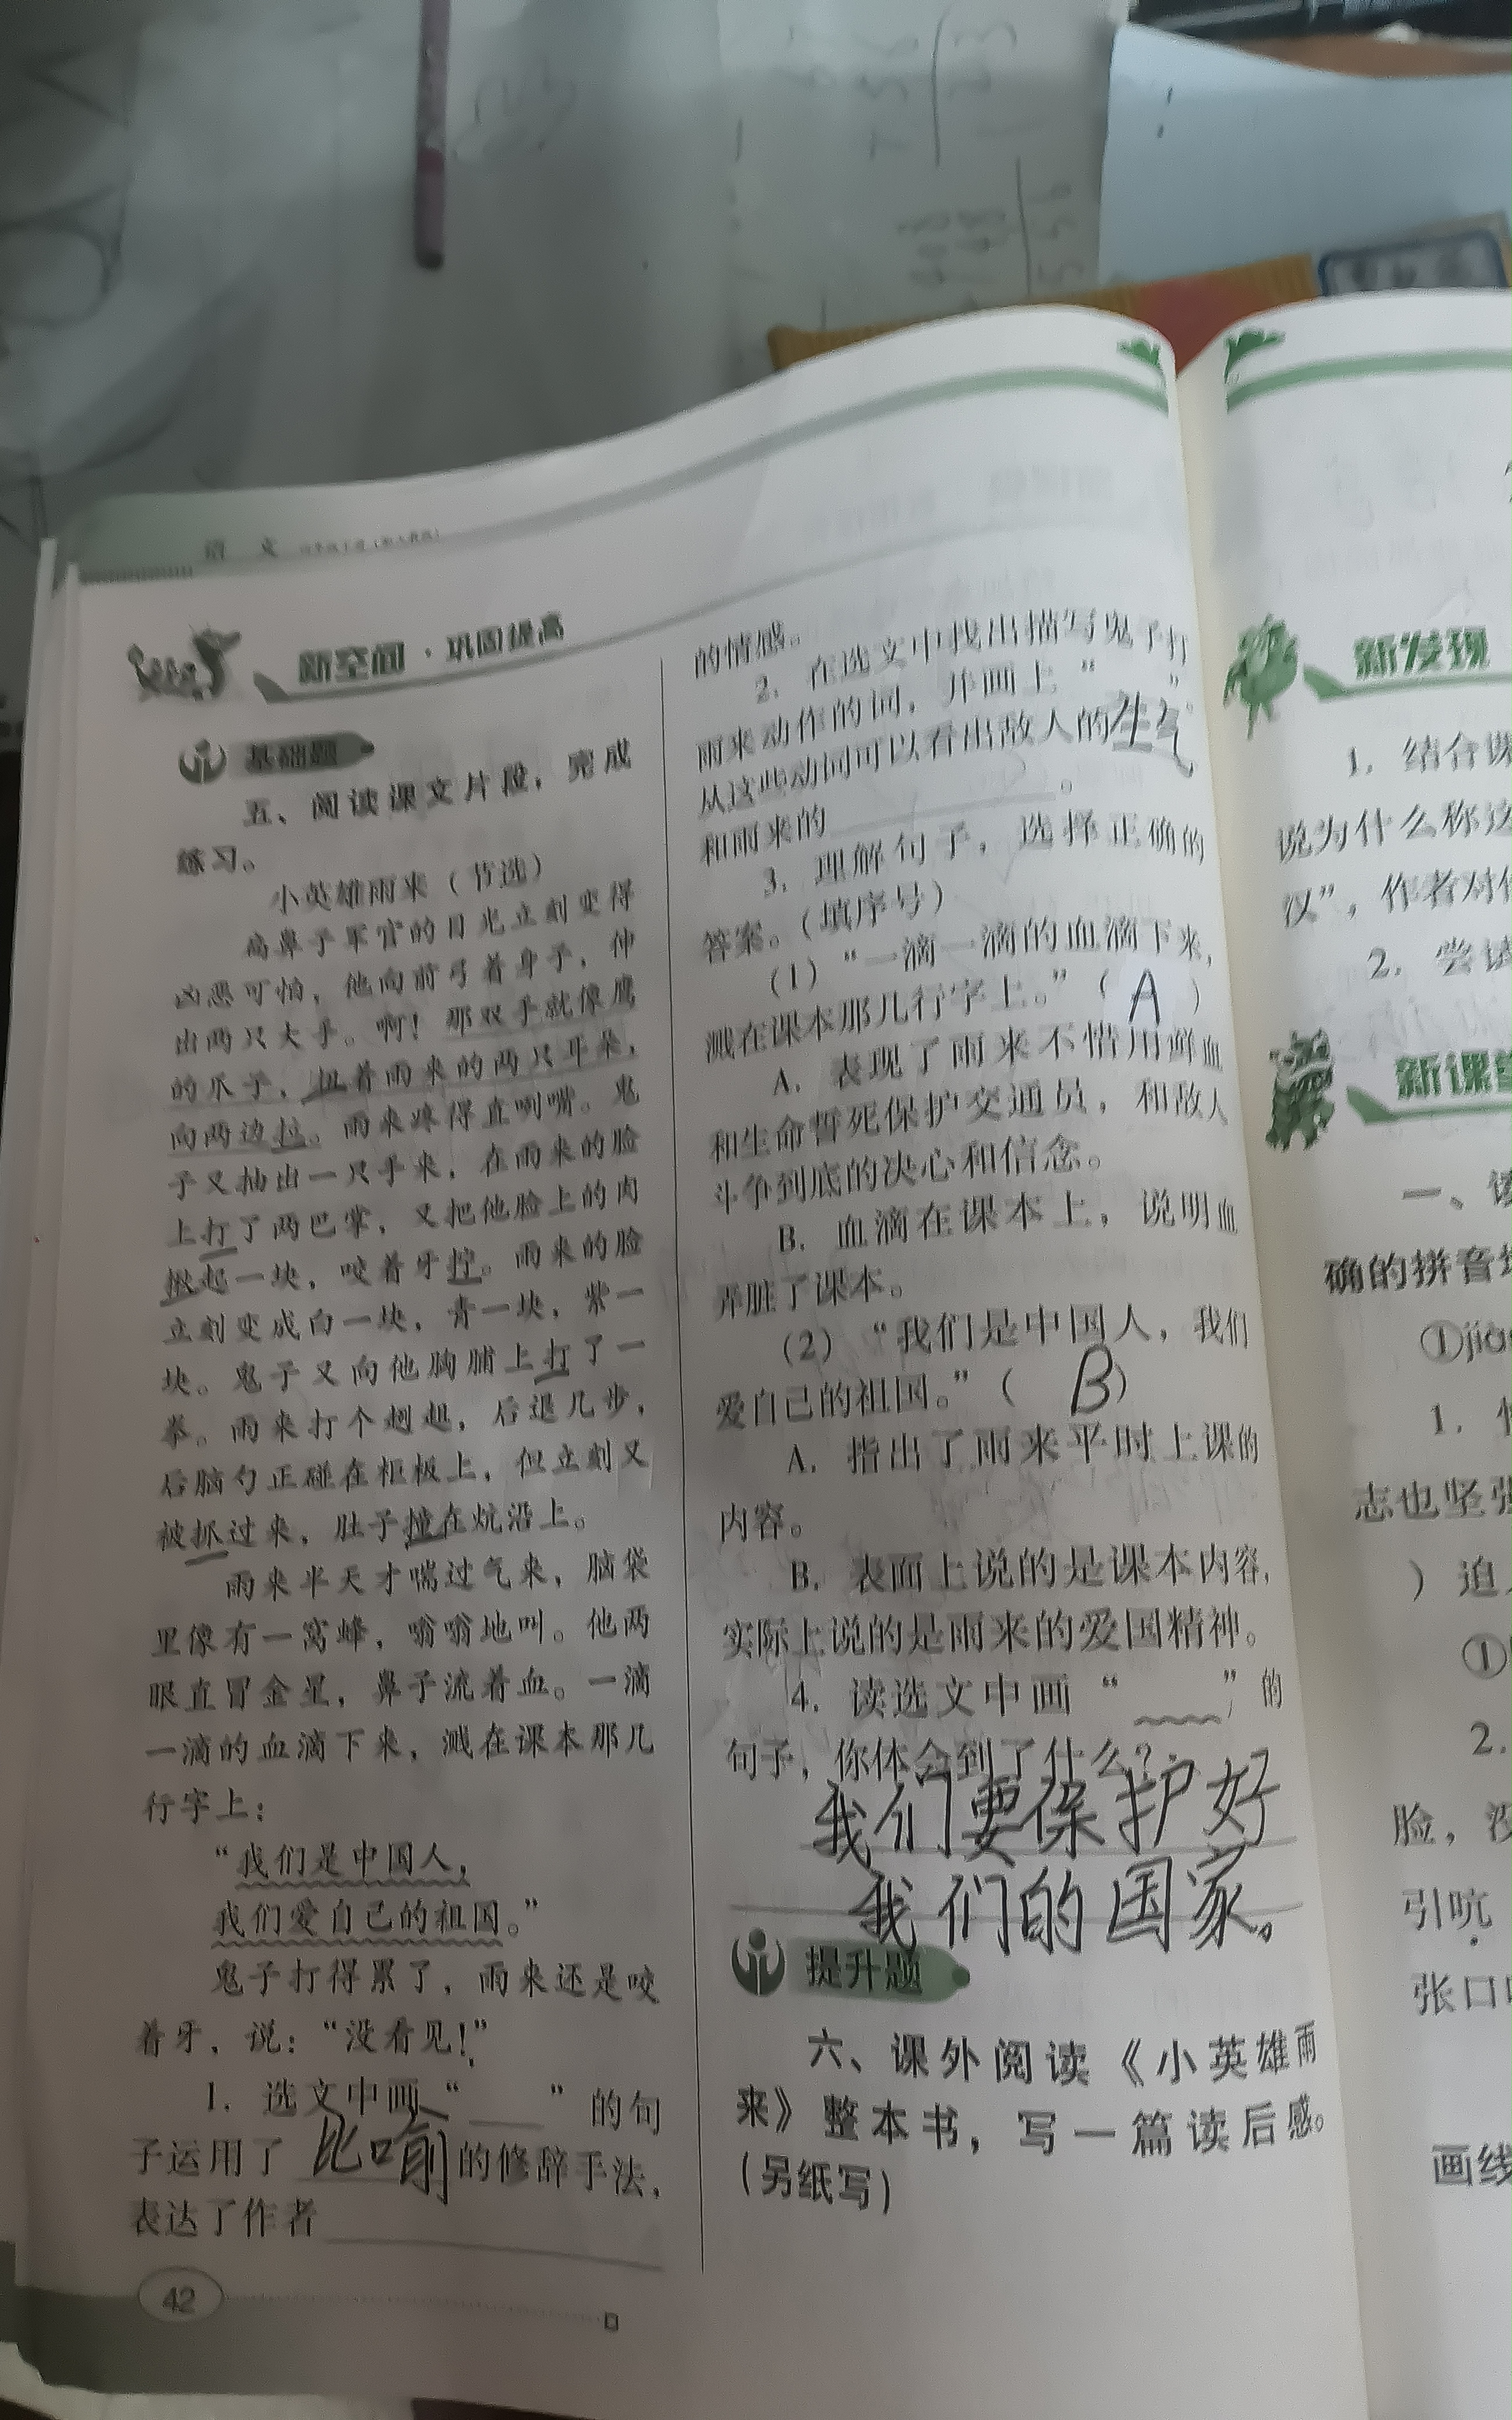 语 文
新空间·巩固提高
基础题
五、阅读课文片段，完成
练习。
小英雄雨来（节选）
高鼻子军官的目光立刻变得
凶恶可怕，他向前弓着身子，伸
出两只大手。啊！那双手就像鹰
的爪子，扭着雨来的两只耳朵，
向两边拉。雨来疼得直咧嘴。鬼
子又抽出一只手来，在雨来的脸
上打了两巴掌，又把他脸上的肉
揪起一块，咬着牙拧。雨来的脸
立刻变成白一块，青一块，紫一
块。鬼子又向他胸脯上打了一
拳。雨来打个趔趄，后退几步，
后脑勺正碰在柜板上，但立刻又
被抓过来，肚子撞在炕沿上。
雨来半天才喘过气来，脑袋
里像有一窝蜂，嗡嗡地叫。他两
眼直冒金星，鼻子流着血。一滴
一滴的血滴下来，溅在课本那几
行字上：
“我们是中国人，
我们爱自己的祖国。”
鬼子打得累了，雨来还是咬
着牙，说：“没看见！”
1. 选文中画“____”的句
子运用了 比喻 的修辞手法，
表达了作者
42
的情感。
2. 在选文中找出描写鬼子打
雨来动作的词，并画上“ ”
从这些动词可以看出敌人的生气
和雨来的 。
3. 理解句子，选择正确的
答案。（填序号）
（1）“一滴一滴的血滴下来，
溅在课本那几行字上。”（ A ）
A. 表现了雨来不惜用鲜血
和生命誓死保护交通员，和敌人
斗争到底的决心和信念。
B. 血滴在课本上，说明血
弄脏了课本。
（2）“我们是中国人，我们
爱自己的祖国。”（ B ）
A. 指出了雨来平时上课的
内容。
B. 表面上说的是课本内容，
实际上说的是雨来的爱国精神。
4. 读选文中画“____”的
句子，你体会到了什么？
我们要保护好
我们的国家。
提升题
六、课外阅读《小英雄雨
来》整本书，写一篇读后感。
（另纸写）
新发现
1. 结合课
说为什么称这
汉”，作者对
2. 尝试
新课堂
一、读
确的拼音
①jiā
1.
志也坚强
）迫
①
2.
脸，没
引吭
张口
画线